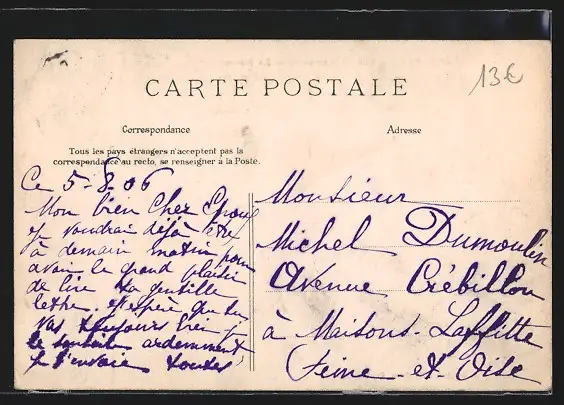 13€
CARTE POSTALE
Correspondance
Adresse
Tous les pays étrangers n'acceptent pas la
correspondance au recto, se renseigner à la Poste.
Ce 5-8.06
Mon bien Cher Epoux
je voudrai déjà être
à demain matin pour
avoir le grand plaisir
de lire ta gentille
lettre. J'espère que tu
vas toujours bien je
le souhaite ardemment
je t'envoie toutes
Monsieur
Michel Dumoulin
Avenue Crébillon
à Maisons-Laffitte
Seine-et-Oise